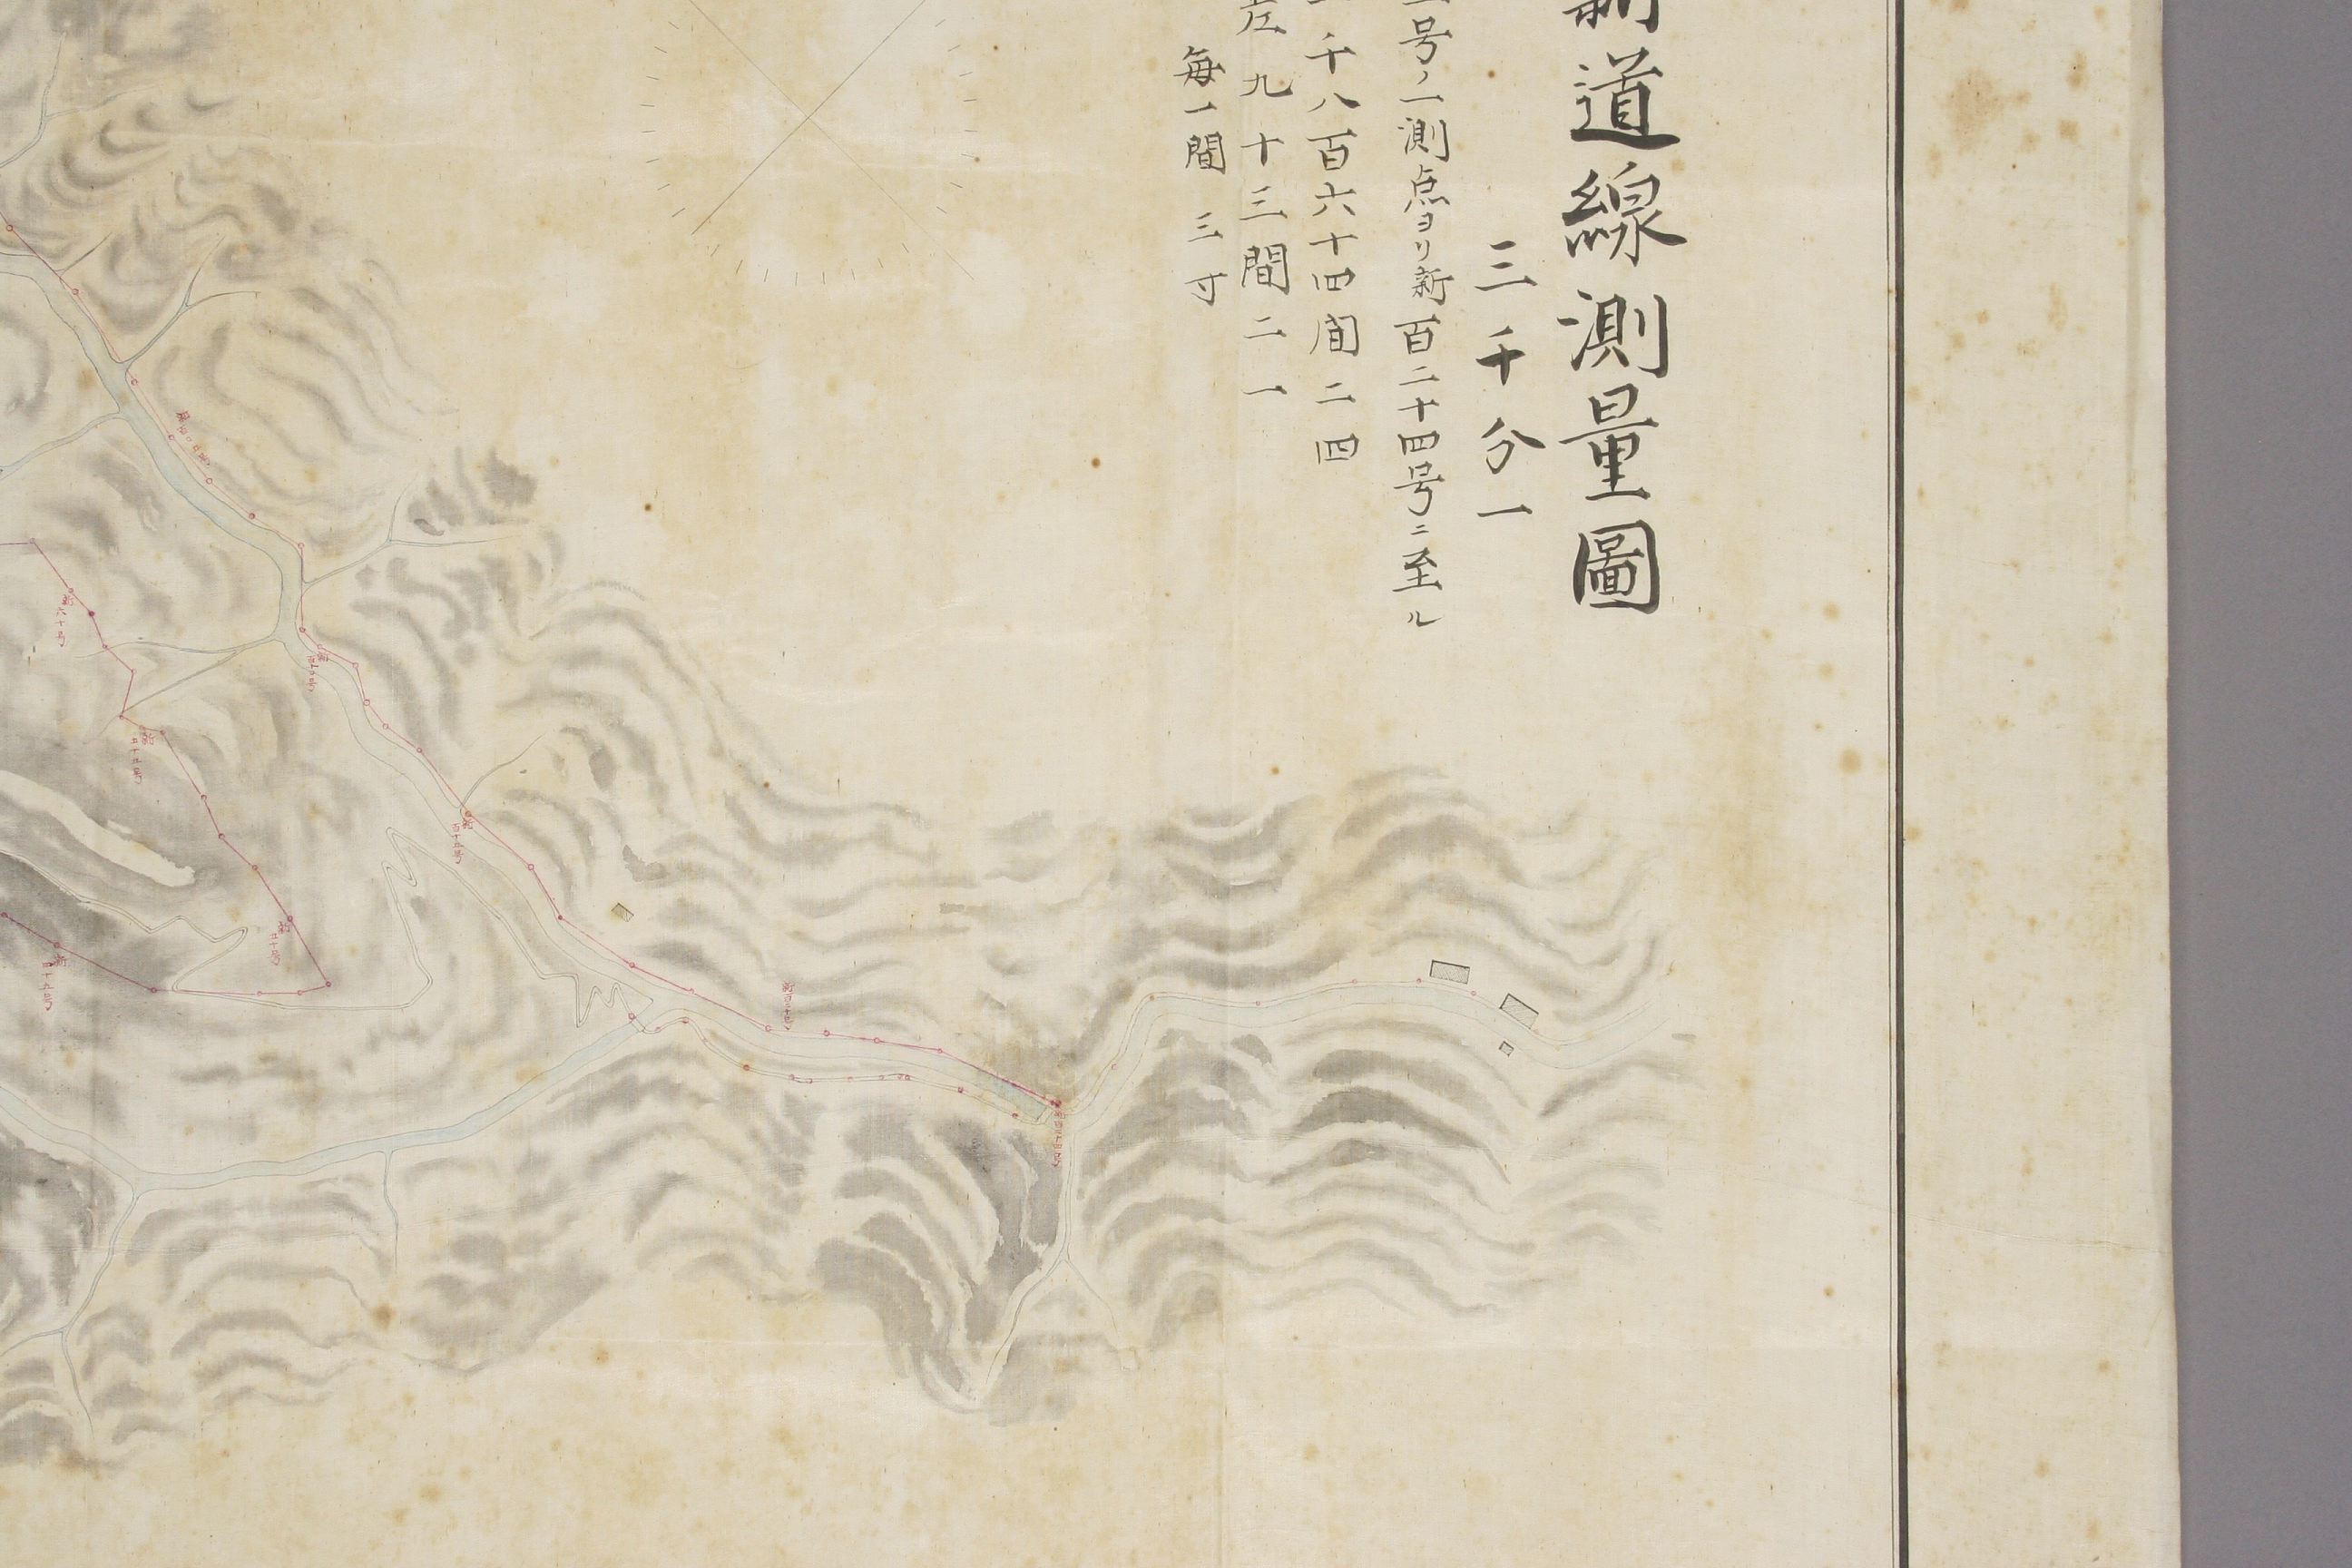 新道線測量圖
三千分一
号ノ一測点ヨリ新百二十四号ニ至ル
千八百六十四間二四
九十三間二一
毎一間 三寸
新六十号
新百十五号
新五十号
新四十五号
新百二十号
新百二十四号